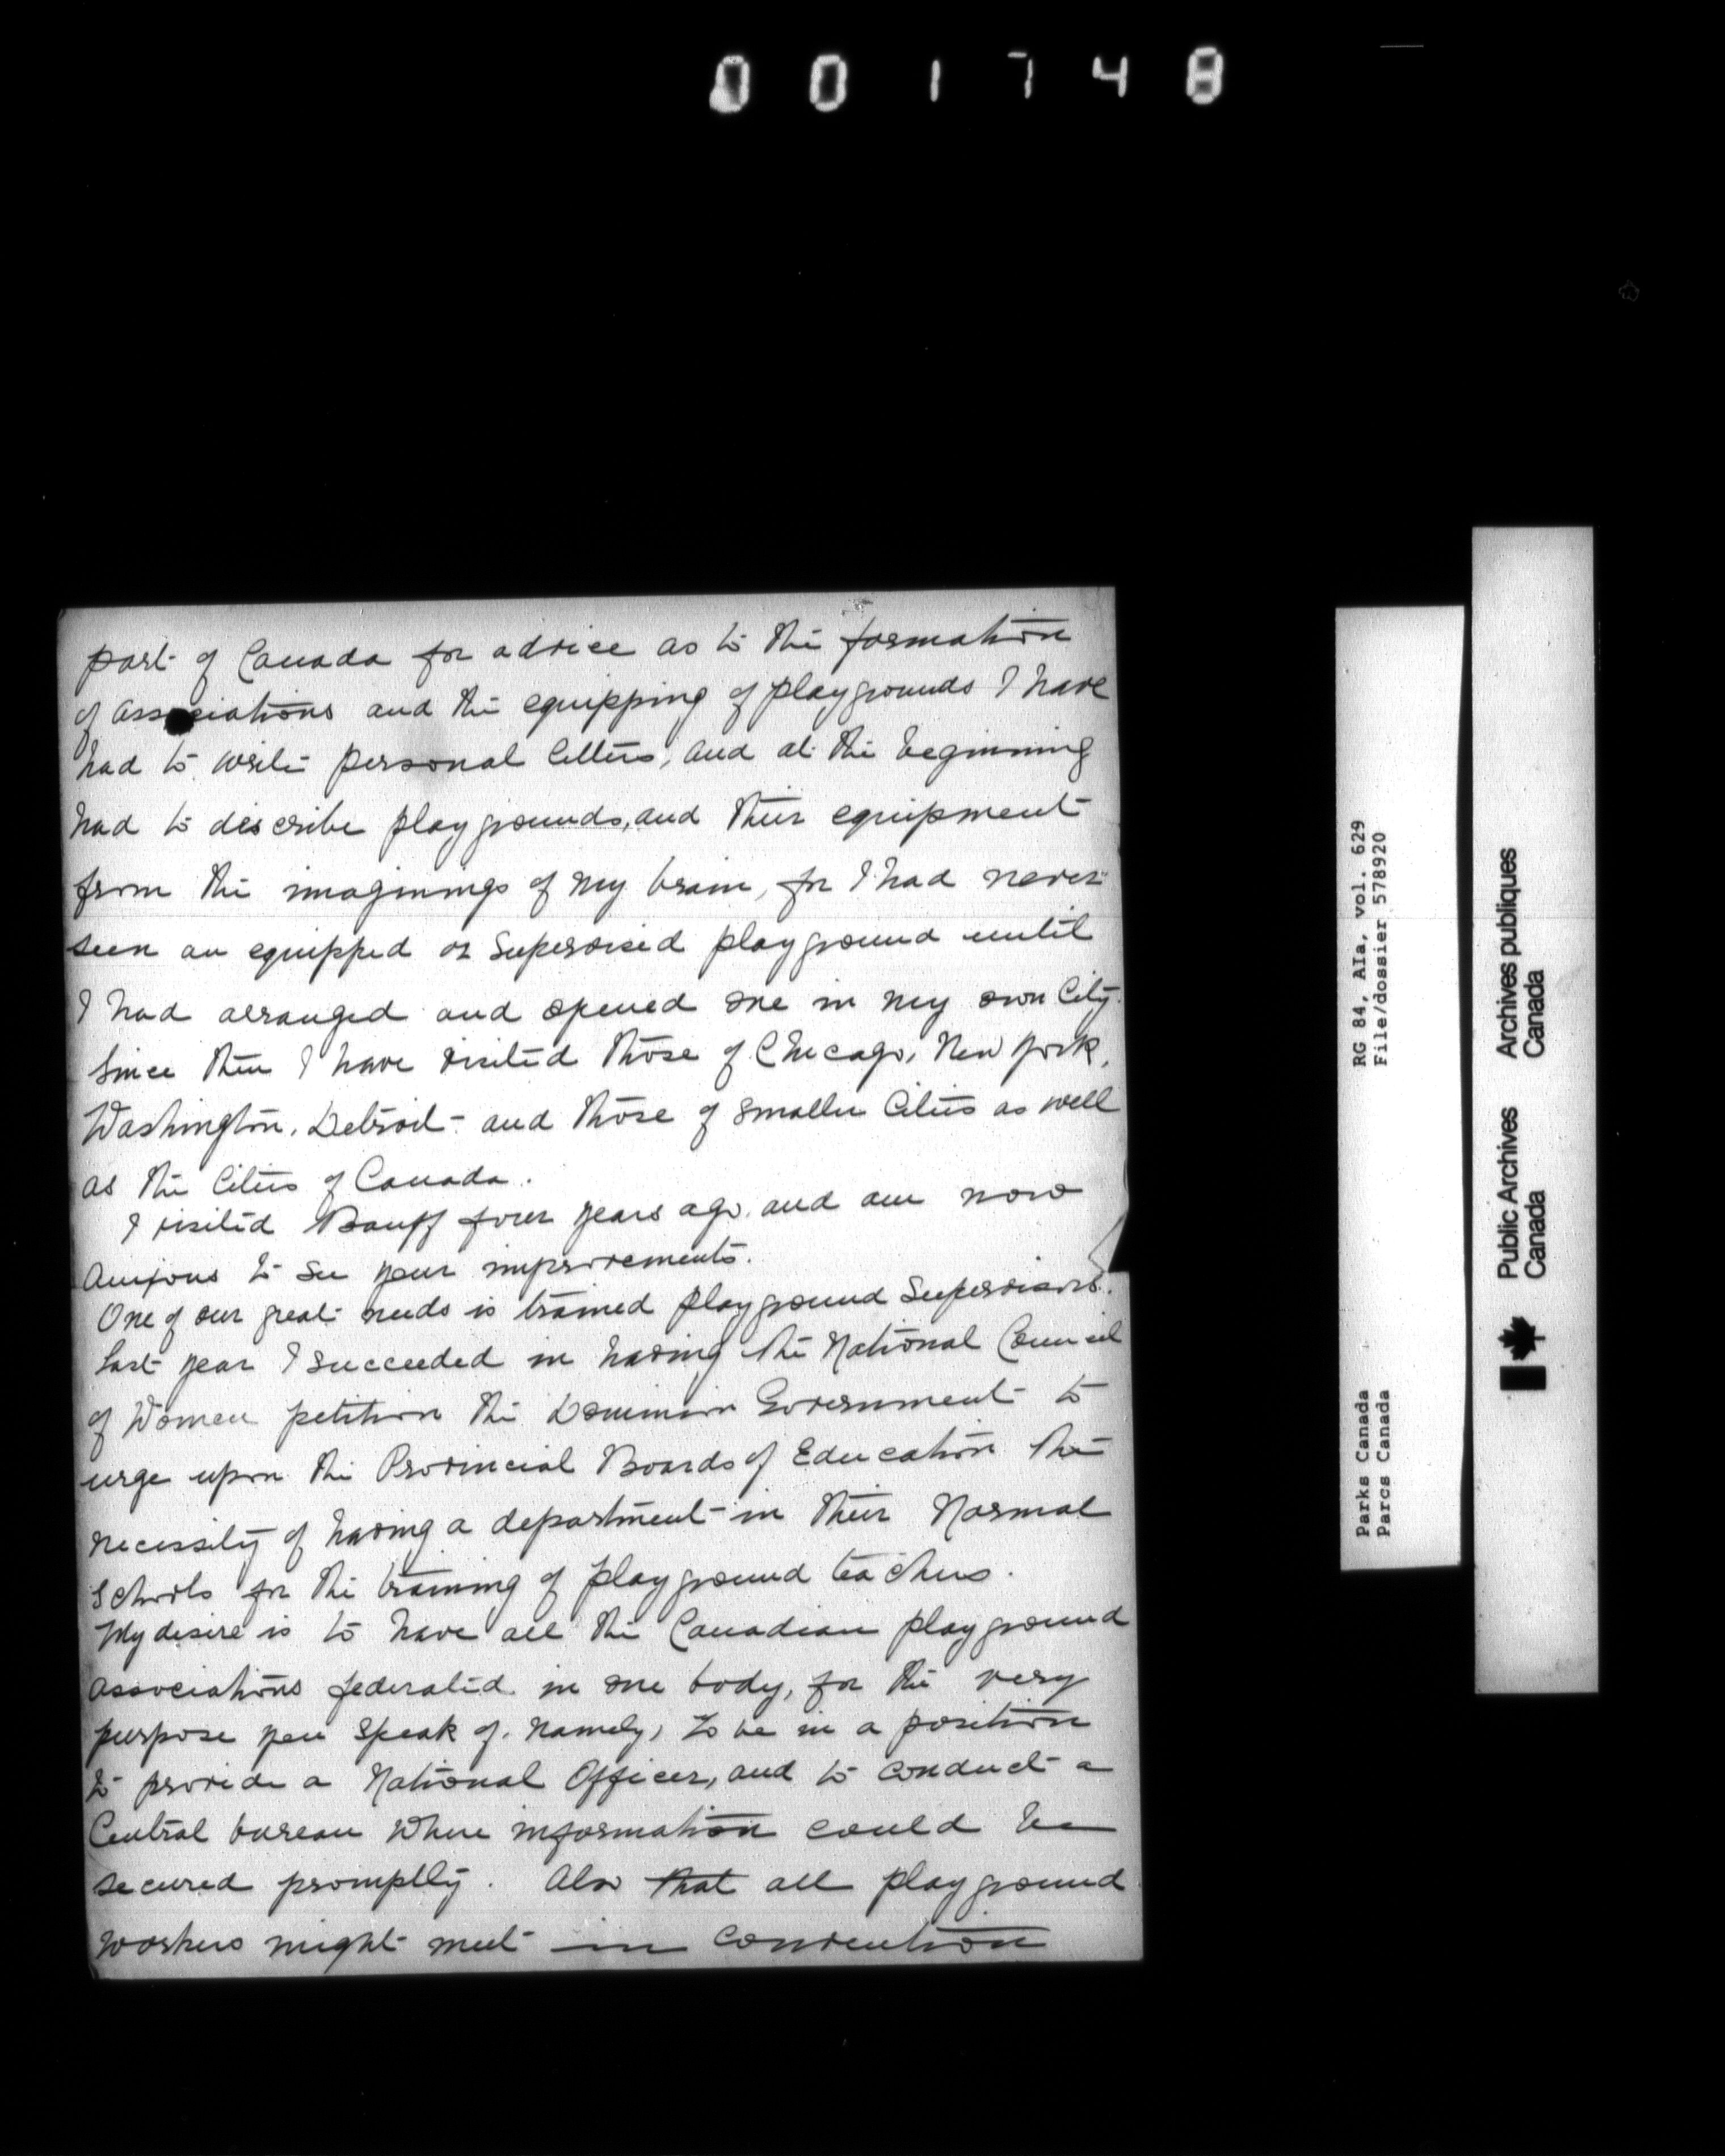 001748
part of Canada for advice as to the formation
of associations and the equipping of playgrounds I have
had to write personal letters, and at the beginning
had to describe playgrounds, and their equipment
from the imaginings of my brain, for I had never
seen an equipped or supervised playground until
I had arranged and opened one in my own City.
Since then I have visited those of Chicago, New York,
Washington, Detroit - and those of smaller Cities as well
as the Cities of Canada.
I visited Banff four years ago. and am now
anxious to see your improvements.
One of our great needs is trained playground Supervisors.
Last year I succeeded in having the National Council
of Women petition the Dominion Government to
urge upon the Provincial Boards of Education the
necessity of having a department in their Normal
Schools for the training of playground teachers.
My desire is to have all the Canadian playground
associations federated in one body, for the very
purpose you speak of. namely, to be in a position
to provide a National Officer, and to conduct a
Central bureau where information could be
secured promptly. Also that all playground
workers might meet in convention
RG 84, AIa, vol. 629
File/dossier 578920
Parks Canada
Parcs Canada
Archives publiques
Canada
Public Archives
Canada